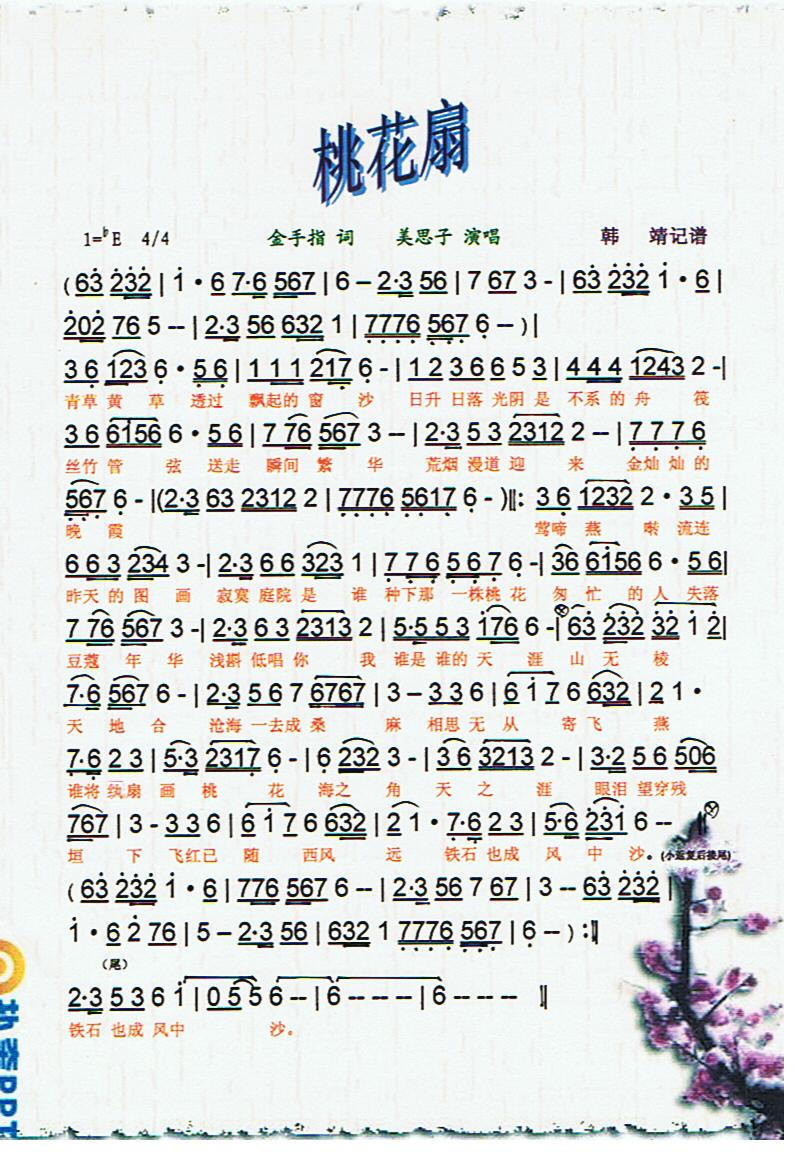 桃花扇
1=♭E 4/4 金手指 词 美思子 演唱 韩 靖记谱
(6̲3̲ 2̲3̲2̲ | 1 · 6 7·6 567 | 6 – 2·3 56 | 7 67 3 - | 63 232 1 · 6 |
202 76 5 -- | 2·3 56 632 1 | 7776 567 6 -- )|
3 6 123 6 · 5 6 | 1 1 1 217 6 - | 1 2 3 6 6 5 3 | 4 4 4 1243 2 -|
青草 黄 草 透过 飘起的 窗 沙 日升 日落 光阴 是 不系 的 舟 筏
3 6 6156 6 · 5 6 | 7 76 567 3 -- | 2·3 5 3 2312 2 -- | 7 7 7 6
丝竹 管 弦 送走 瞬间 繁 华 荒烟 漫道 迎 来 金灿 灿的
567 6 - |(2·3 63 2312 2 | 7776 5617 6 - )‖: 3 6 1232 2 · 3 5 |
晚 霞 莺啼 燕 啭 流连
6 6 3 234 3 -| 2·3 6 6 323 1 | 7 7 6 5 6 7 6 - | 36 6156 6 · 56|
昨天 的 图 画 寂寞 庭院 是 谁 种下那 一株桃 花 匆 忙 的 人 失落
7 76 567 3 -| 2·3 6 3 2313 2 | 5·5 5 3 176 6 -| 63 232 32 1 2|
豆蔻 年 华 浅斟 低唱 你 我 谁是 谁的 天 涯 山 无 棱
7·6 567 6 - | 2·3 5 6 7 6767 | 3 – 3 3 6 | 6 1 7 6 632 | 2 1 ·
天 地 合 沧海 一去成 桑 麻 相思 无 从 寄 飞 燕
7·6 2 3 | 5·3 2317 6 -| 6 232 3 - | 36 3213 2 – | 3·2 5 6 506
谁将 纨扇 画 桃 花 海之 角 天 之 涯 眼泪 望穿 残
767 | 3 - 3 3 6 | 6 1 7 6 632 | 2 1 · 7·6 2 3 | 5·6 231 6 --
垣 下 飞红已 随 西风 远 铁石 也成 风 中 沙。(小返复后接尾)
(63 232 1 · 6 | 776 567 6 – | 2·3 56 7 67 | 3 -- 63 232 |
1 · 6 2 76 | 5 – 2·3 56 | 632 1 7776 567 | 6 -- ) :‖
(尾)
2·3 5 3 6 1 | 0 5 5 6 -- | 6 -- -- | 6 -- -- -- ‖
铁石 也成 风中 沙。